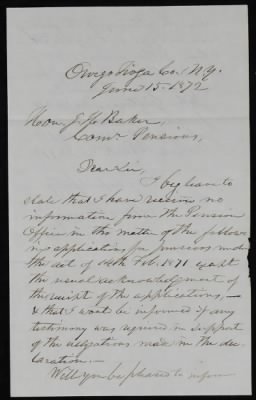 Owego Tioga Co. N.Y.
June 15. 1872
Hon. J. H. Baker,
Comr. Pensions,
Dear Sir,
I beg leave to
state that I have receive no
information from the Pension
Office in the matter of the follow
ing applications for pensions under
the act of 14th Feb. 1871 except
the usual acknowledgment of
the receipt of the applications, —
& that I wont be informed if any
testimony was required in support
of the allegations made in the dec
laration. —
Will you be pleased to inform